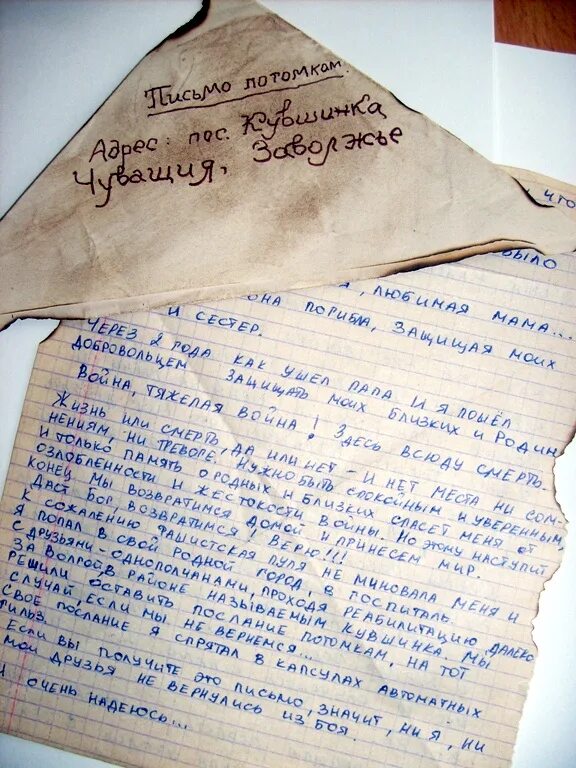 Письмо потомкам.
Адрес: пос. Кувшинка
Чувашия, Заволжье
что
было
, любимая мама...
она погибла, защищая моих
и сестер.
Через 2 года как ушел папа и я пошёл
добровольцем защищать моих близких и Родин
Война, тяжелая война! Здесь всюду смерть.
Жизнь или смерть, да или нет - и нет места ни сом-
нениям, ни тревоге! Нужно быть спокойным и уверенным,
и только память о родных и близких спасет меня от
озлобленности и жестокости войны. Но этому наступит
конец мы возвратимся домой и принесем мир.
Даст Бог, возвратимся! Верю!!!
К сожалению фашистская пуля не миновала меня и
я попал в свой родной город, в госпиталь.
С друзьями-однополчанами, проходя реабилитацию далеко
за Волгой, в районе называемым Кувшинка мы
решили оставить послание потомкам, на тот
случай, если мы не вернемся...
Свое послание я спрятал в капсулах автоматных
гильз.
Если вы получите это письмо, значит, ни я, ни
мои друзья не вернулись из боя.
очень надеюсь...